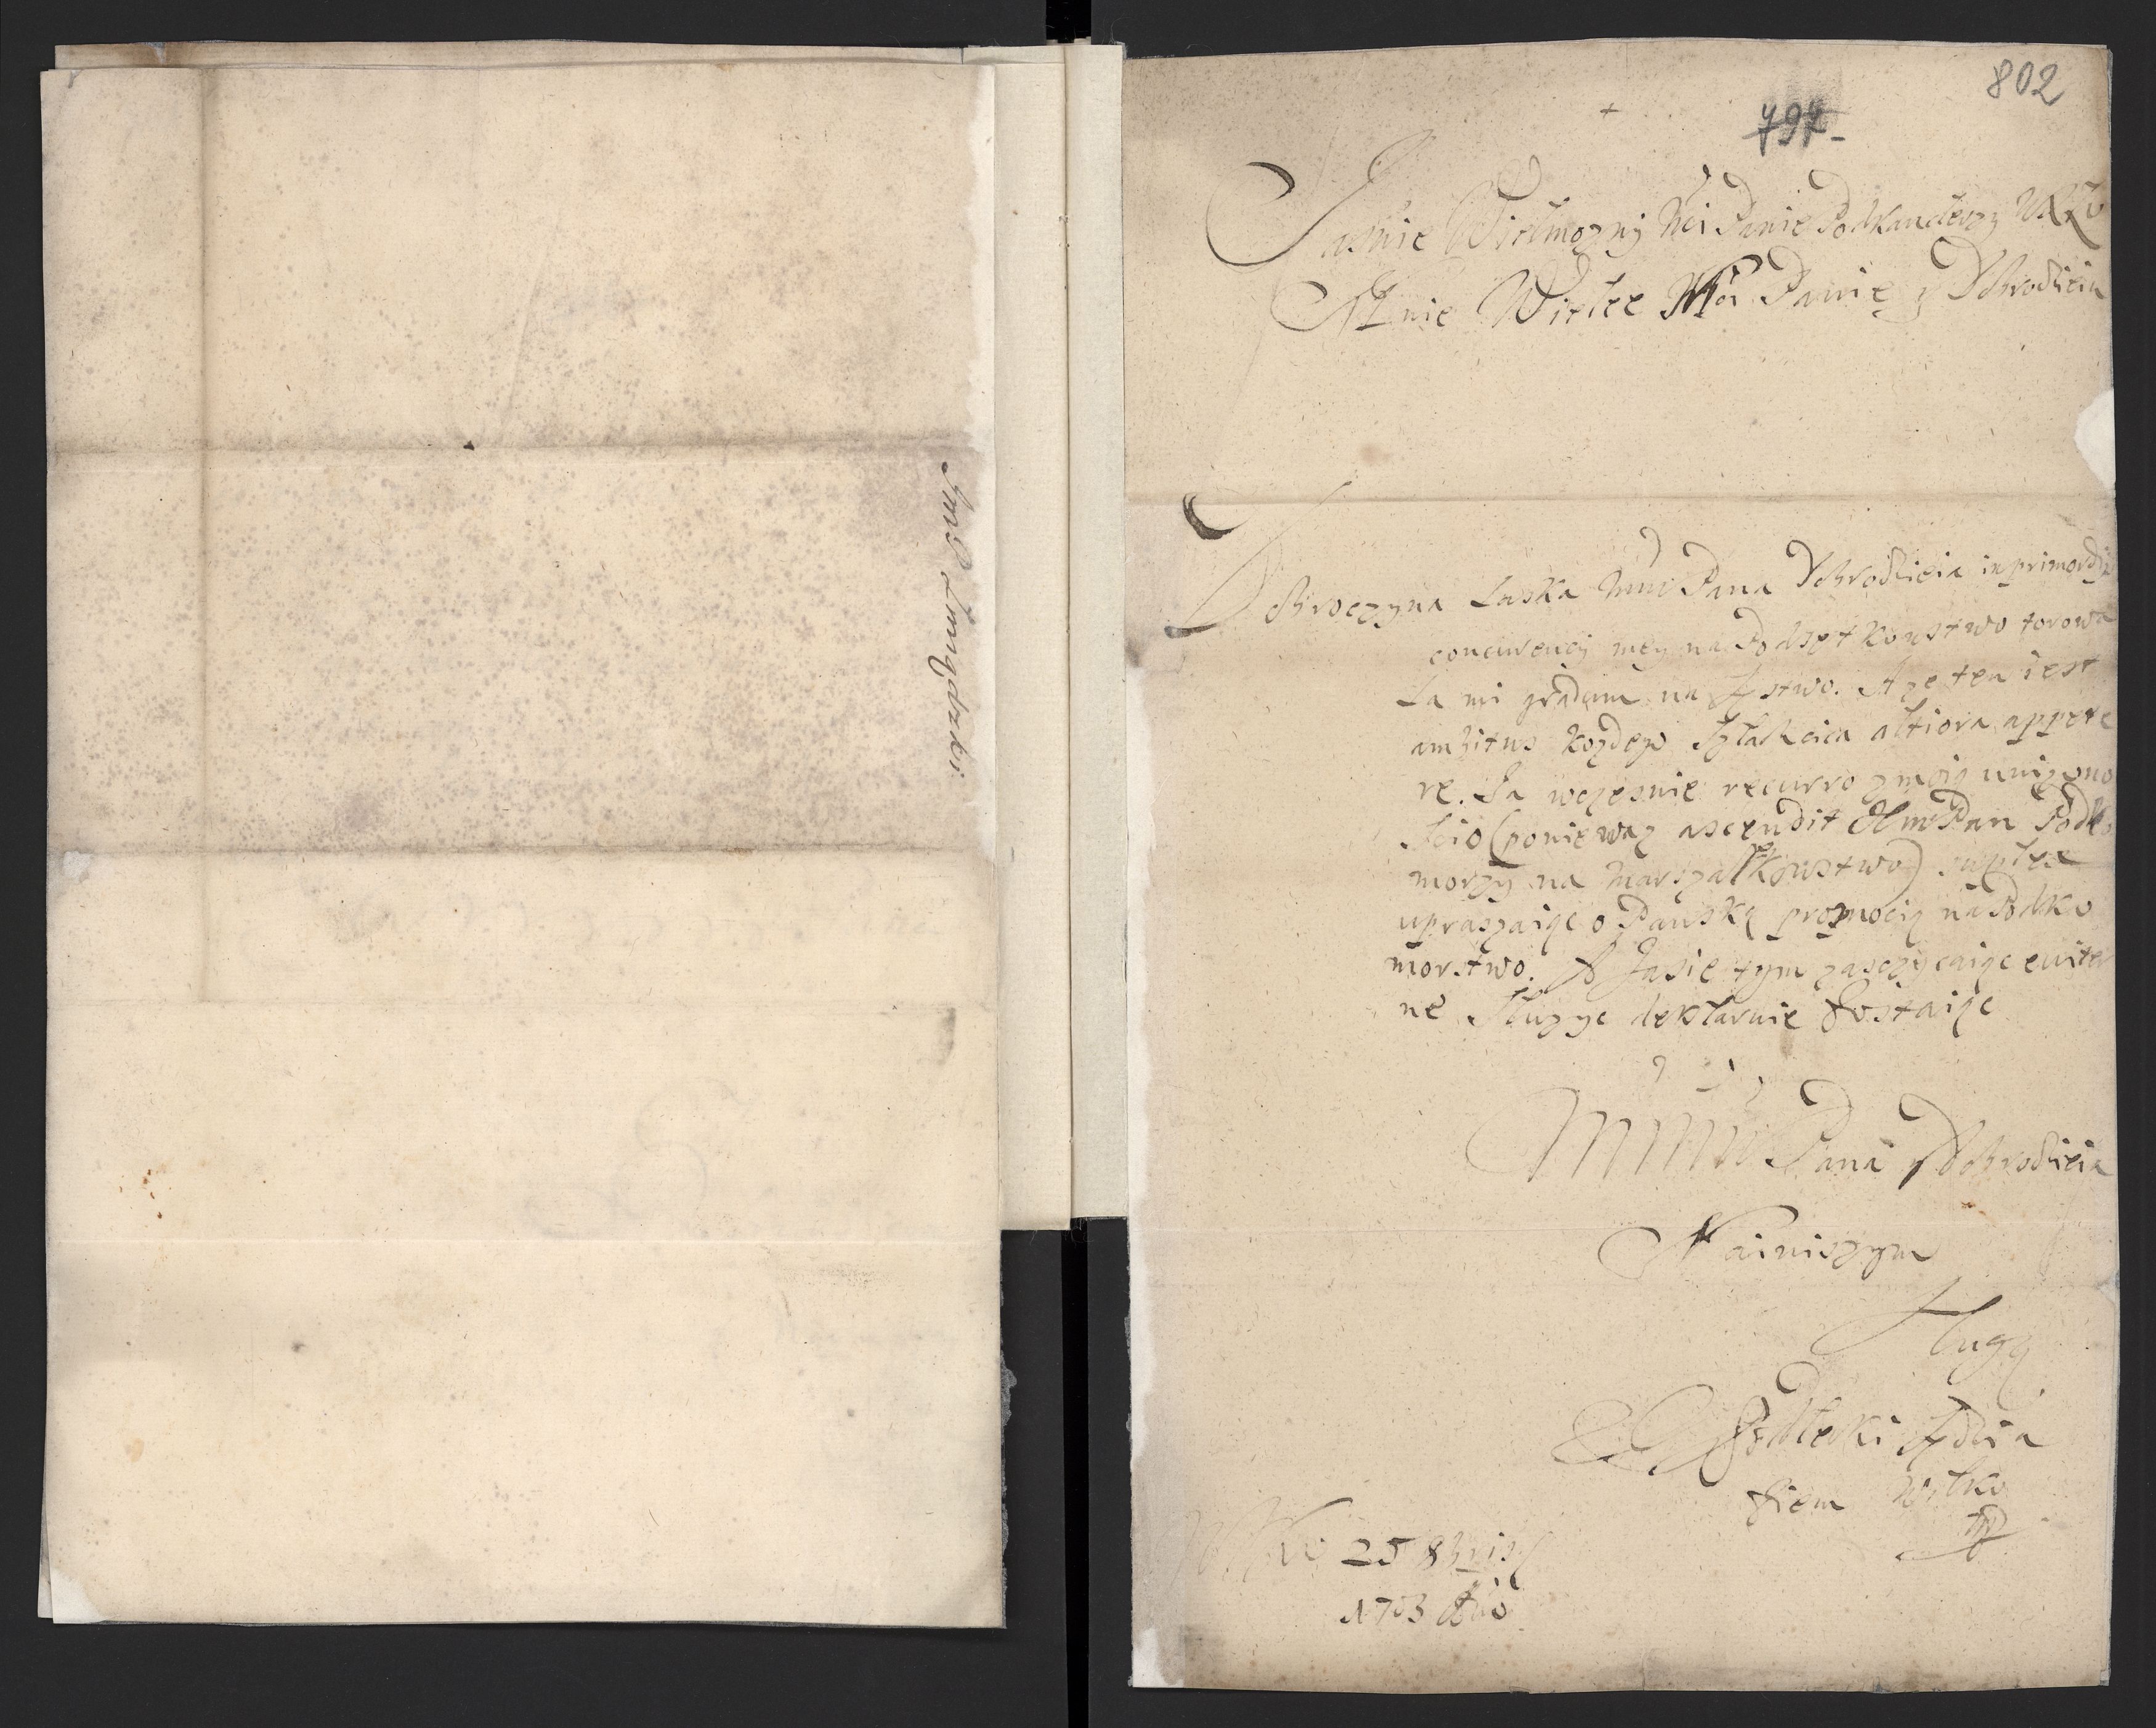 JmP Zmigdzki
802
797
Jasnie Wielmozny Mci Panie Podkanclerzy WXLo
Mnie Wielce Mci Panie y Dobrodzieiu
Dobroczyna Laska Mmo Pana Dobrodzieia in primordijs
concurencij mey na Podsęt Kowstwo torowa
La mi gradum na Sęstwo. A ze ten iest
ambitus kozdego Szlachcica altiora appete
re. Ja wczesnie recurro z moią unizono
scio (poniewaz ascendit JmPan Podko
morzy na Marszałkowstwo) suplex
upraszaiąc o Pańską promocią na Podko
morstwo. A Ja sie tym zasczycaiąc euiter
ne Słuzyc deklaruie Zostaiąc
MMMo Pana y Dobrodzieia
Nainiszym
Sługą
Podleski Sędzia
Ziem Wilko
mp
25 8bris
1703 Ao